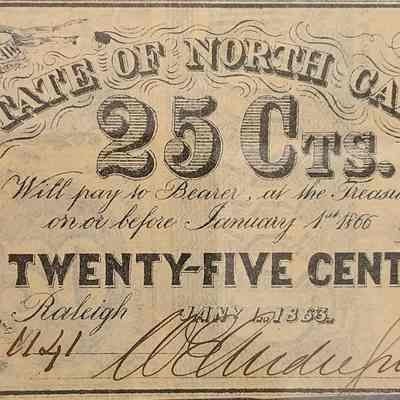 STATE OF NORTH CA
25 CTS.
Will pay to Bearer, at the Treasu
on or before January 1st 1866
TWENTY-FIVE CENT
Raleigh JANY 1st 1863.